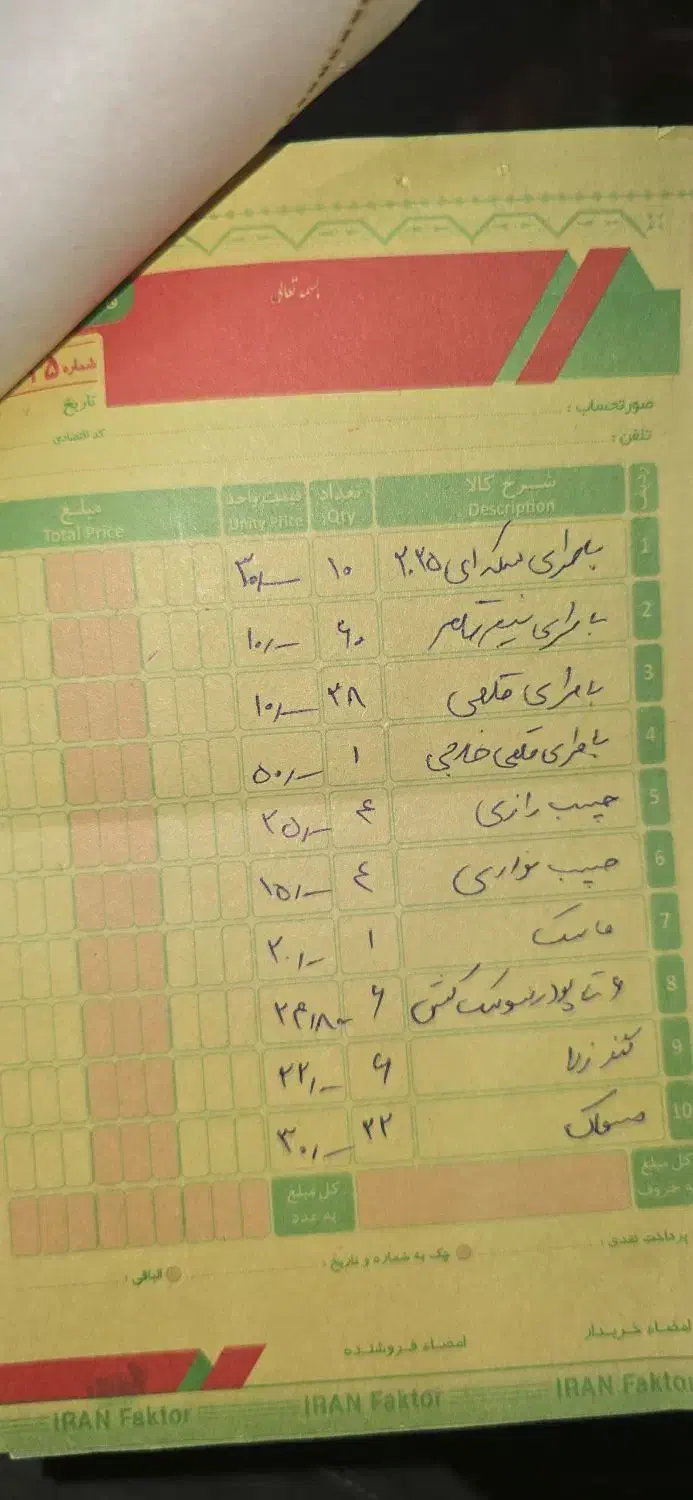 بسمه تعالی
شماره ۵
تاریخ
صورتحساب :
کد اقتصادی
تلفن :
ردیف شرح کالا تعداد قیمت واحد مبلغ
Description Qty Unity Price Total Price
1 باطری سکه ای ۲۰۲۵ ۱۰ ۳۰/-
2 باطری نیم قلم ۶۰ ۱۰/-
3 باطری قلمی ۲۸ ۱۰/-
4 باطری قلمی خارجی ۱ ۵۰/-
5 چسب رازی ۴ ۲۵/-
6 چسب نواری ۴ ۱۵/-
7 ماسک ۱ ۲۰/-
8 ۶ تا پودر سوسک کش ۶
9 ۶ ۲۲/-
10 مسواک ۲۲ ۳۰/-
کل مبلغ به حروف کل مبلغ به عدد
پرداخت نقدی : چک به شماره و تاریخ : الباقی :
امضاء خریدار امضاء فروشنده
IRAN Faktor IRAN Faktor IRAN Faktor